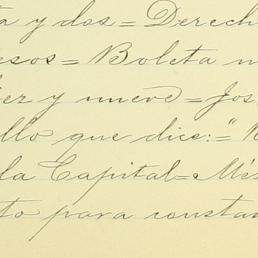 a y dos = Derech
esos = Boleta n
er y nueve = Jos
llo que dice: = "R
la Capital = Méx
to para constan